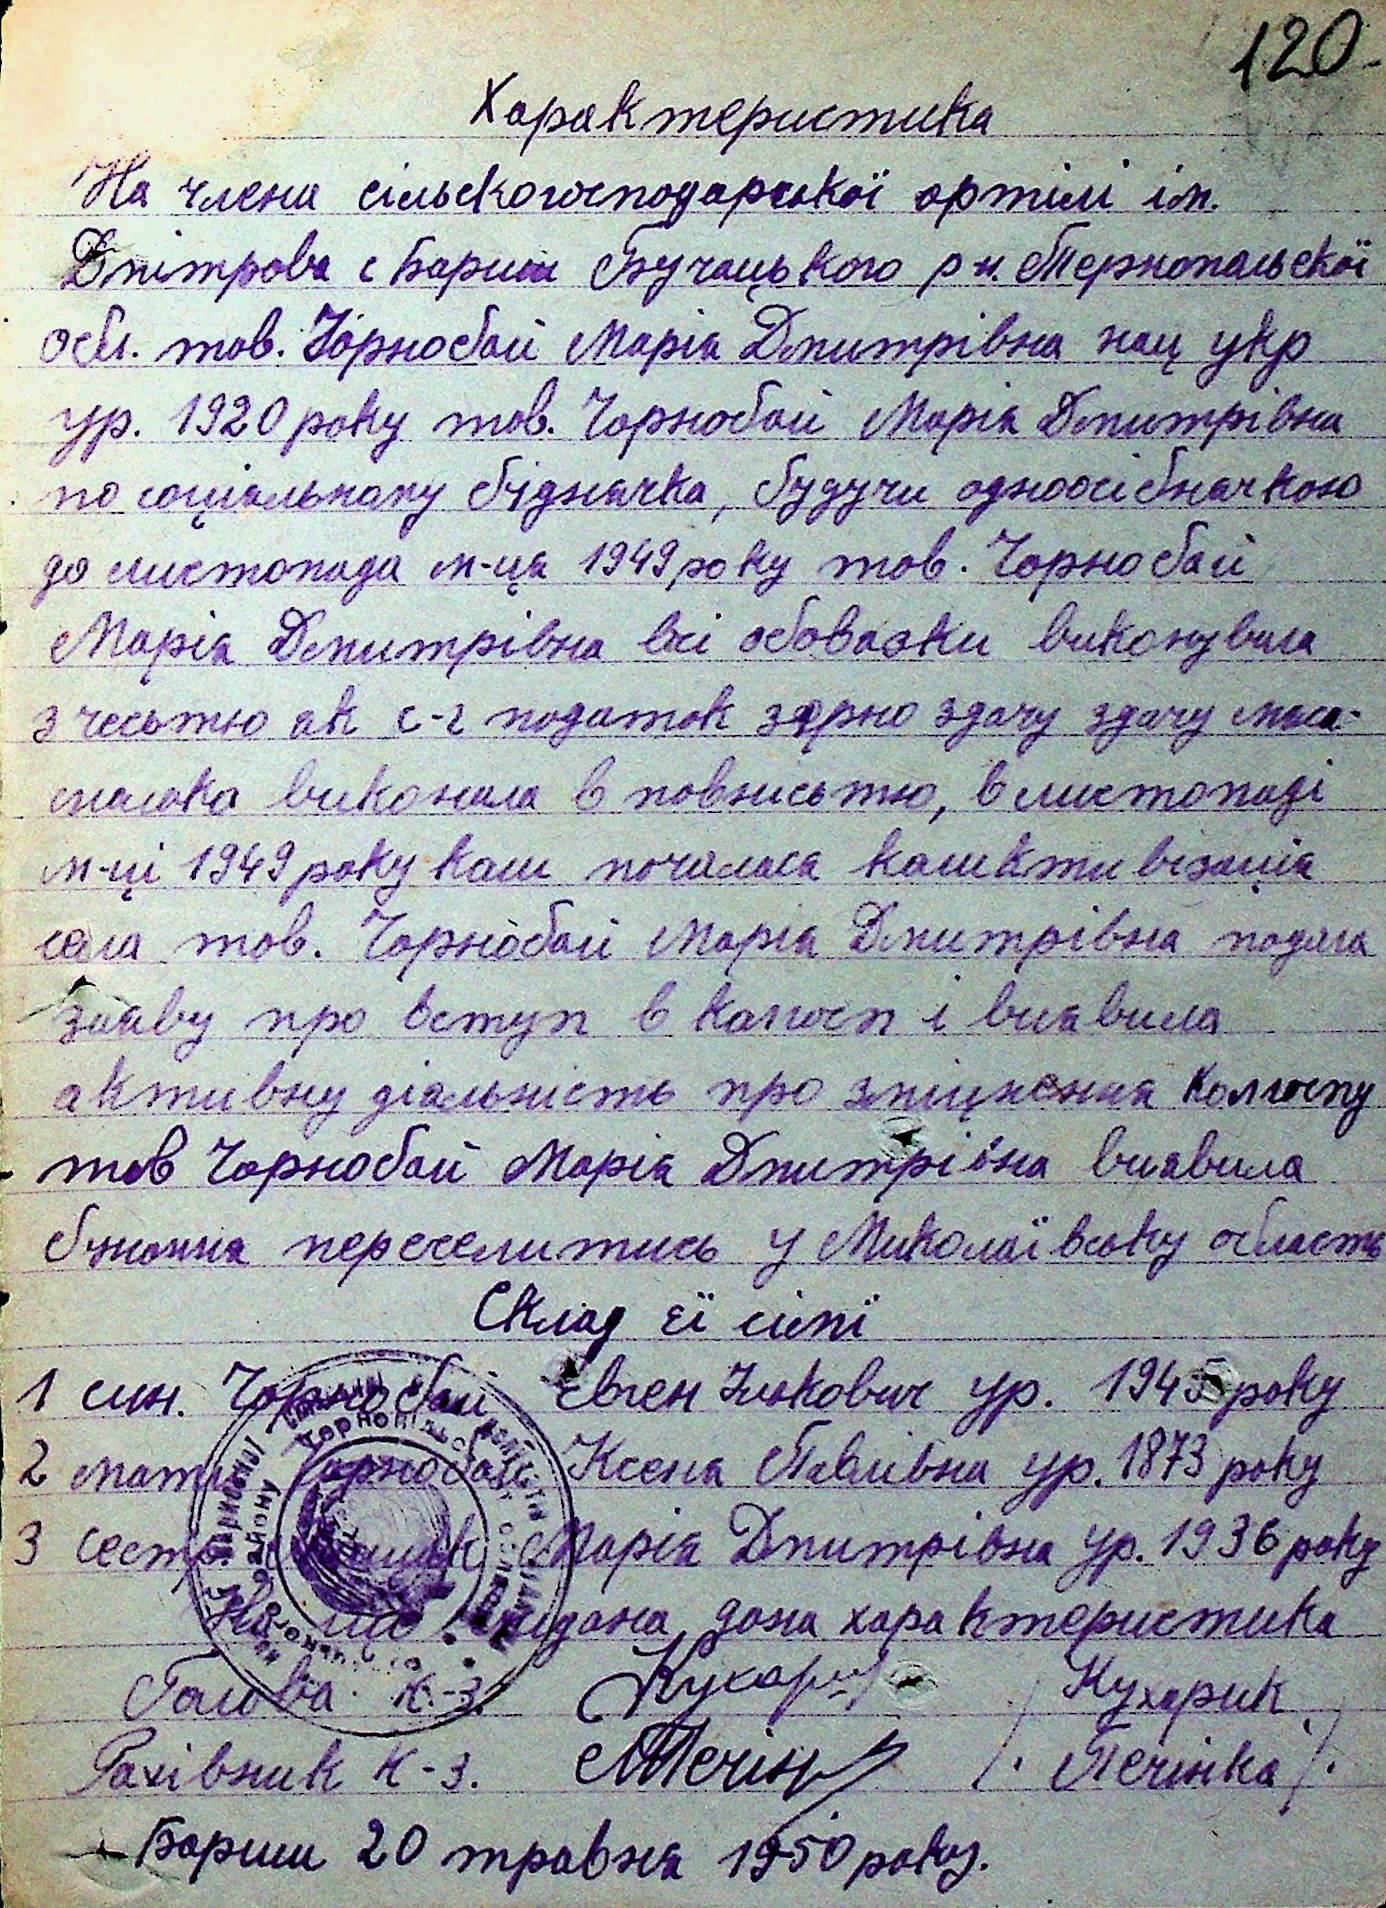 120
Характеристика
На члена сільскогосподарської артілі ім.
Дмітрова с Бариш Бучацького р-н. Тернопільскої
обл. тов. Чорнобай Марія Дмитрівна нац укр
ур. 1920 року тов. Чорнобай Марія Дмитрівна
по соціальному біднячка, будучи одноосібначкою
до листопада м-ця 1949 року тов. Чорнобай
Марія Дмитрівна всі обовазки виконувала
з чесьтю ак с-г податок зерно здачу здачу маса-
молока виконала в повнисьтю, в листопаді
м-ці 1949 року коли почалася коликтивізація
села тов. Чорнобай Марія Дмитрівна подала
заяву про вступ в колгосп і виавила
активну діальність про зміцнення колгоспу
тов Чорнобай Марія Дмитрівна виавила
бужання переселитись у Миколаївську область
Склад її сімї
1 син. Чорнобай Євген Ількович ур. 1945 року
2 мати Чорнобай Ксеня Павлівна ур. 1873 року
3 сестра Марія Дмитрівна ур. 1936 року
На що видана дана характеристика
Голова К-з. Кухарик / Кухарик
Рахівник К-з. Печінка /. Печінка /.
Бариш 20 травня 1950 року.